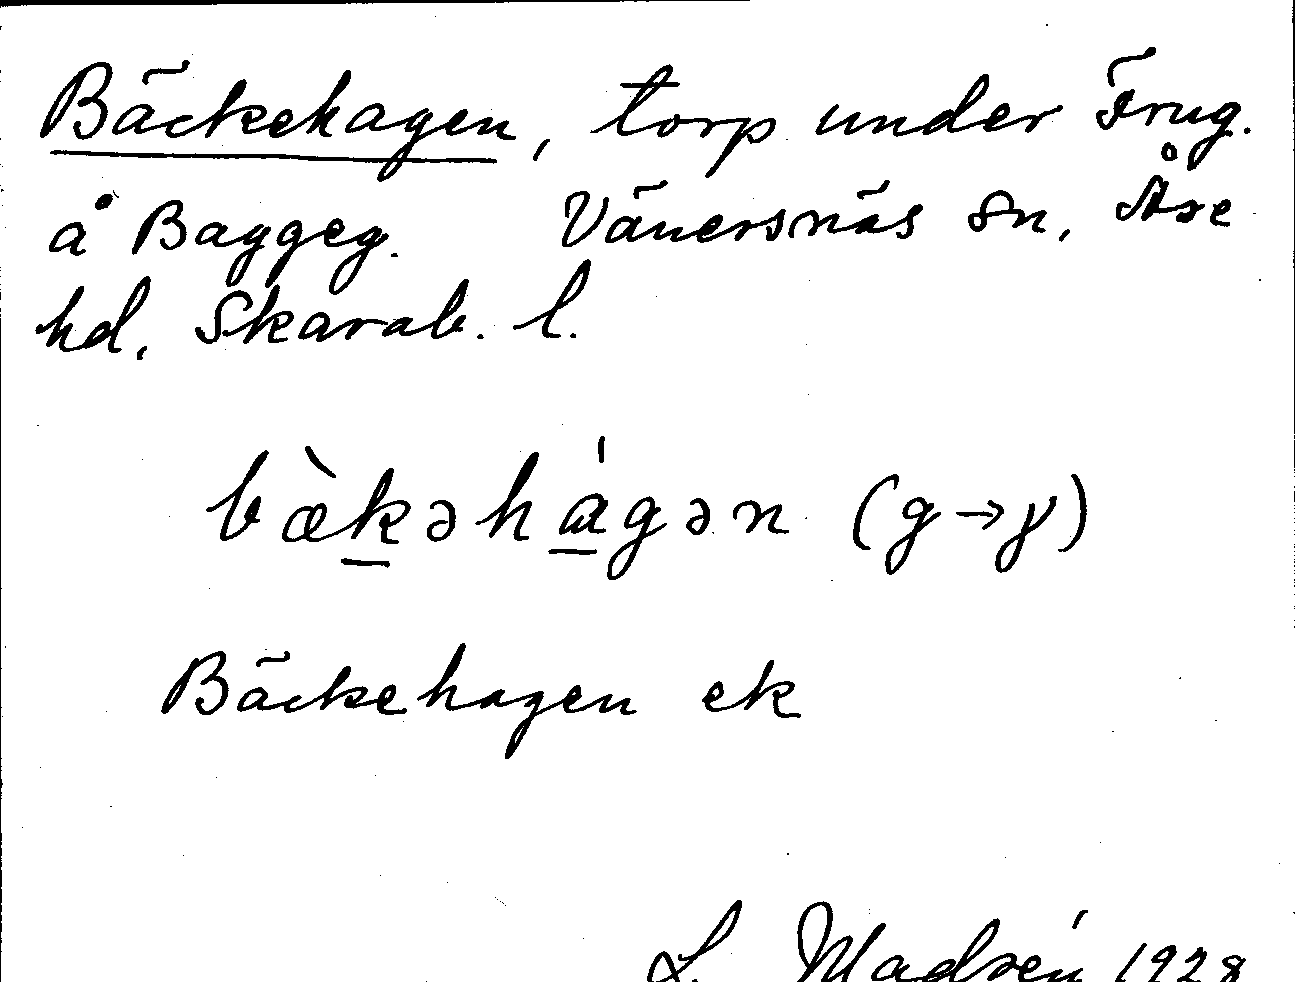 Bäckehagen, torp under Frug.
å Baggeg. Vänersnäs sn, Åse
hd, Skarab. l.
bæ̀k̲əhá̲gən (g→γ)
Bäckehagen ek
L. Madsén 1928